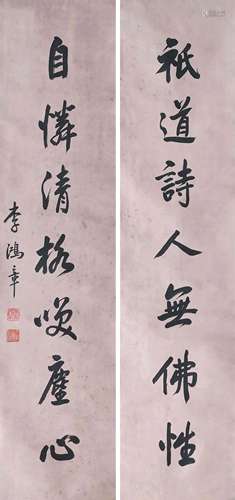 祇道詩人無佛性
自憐清格嘆塵心
李鴻章